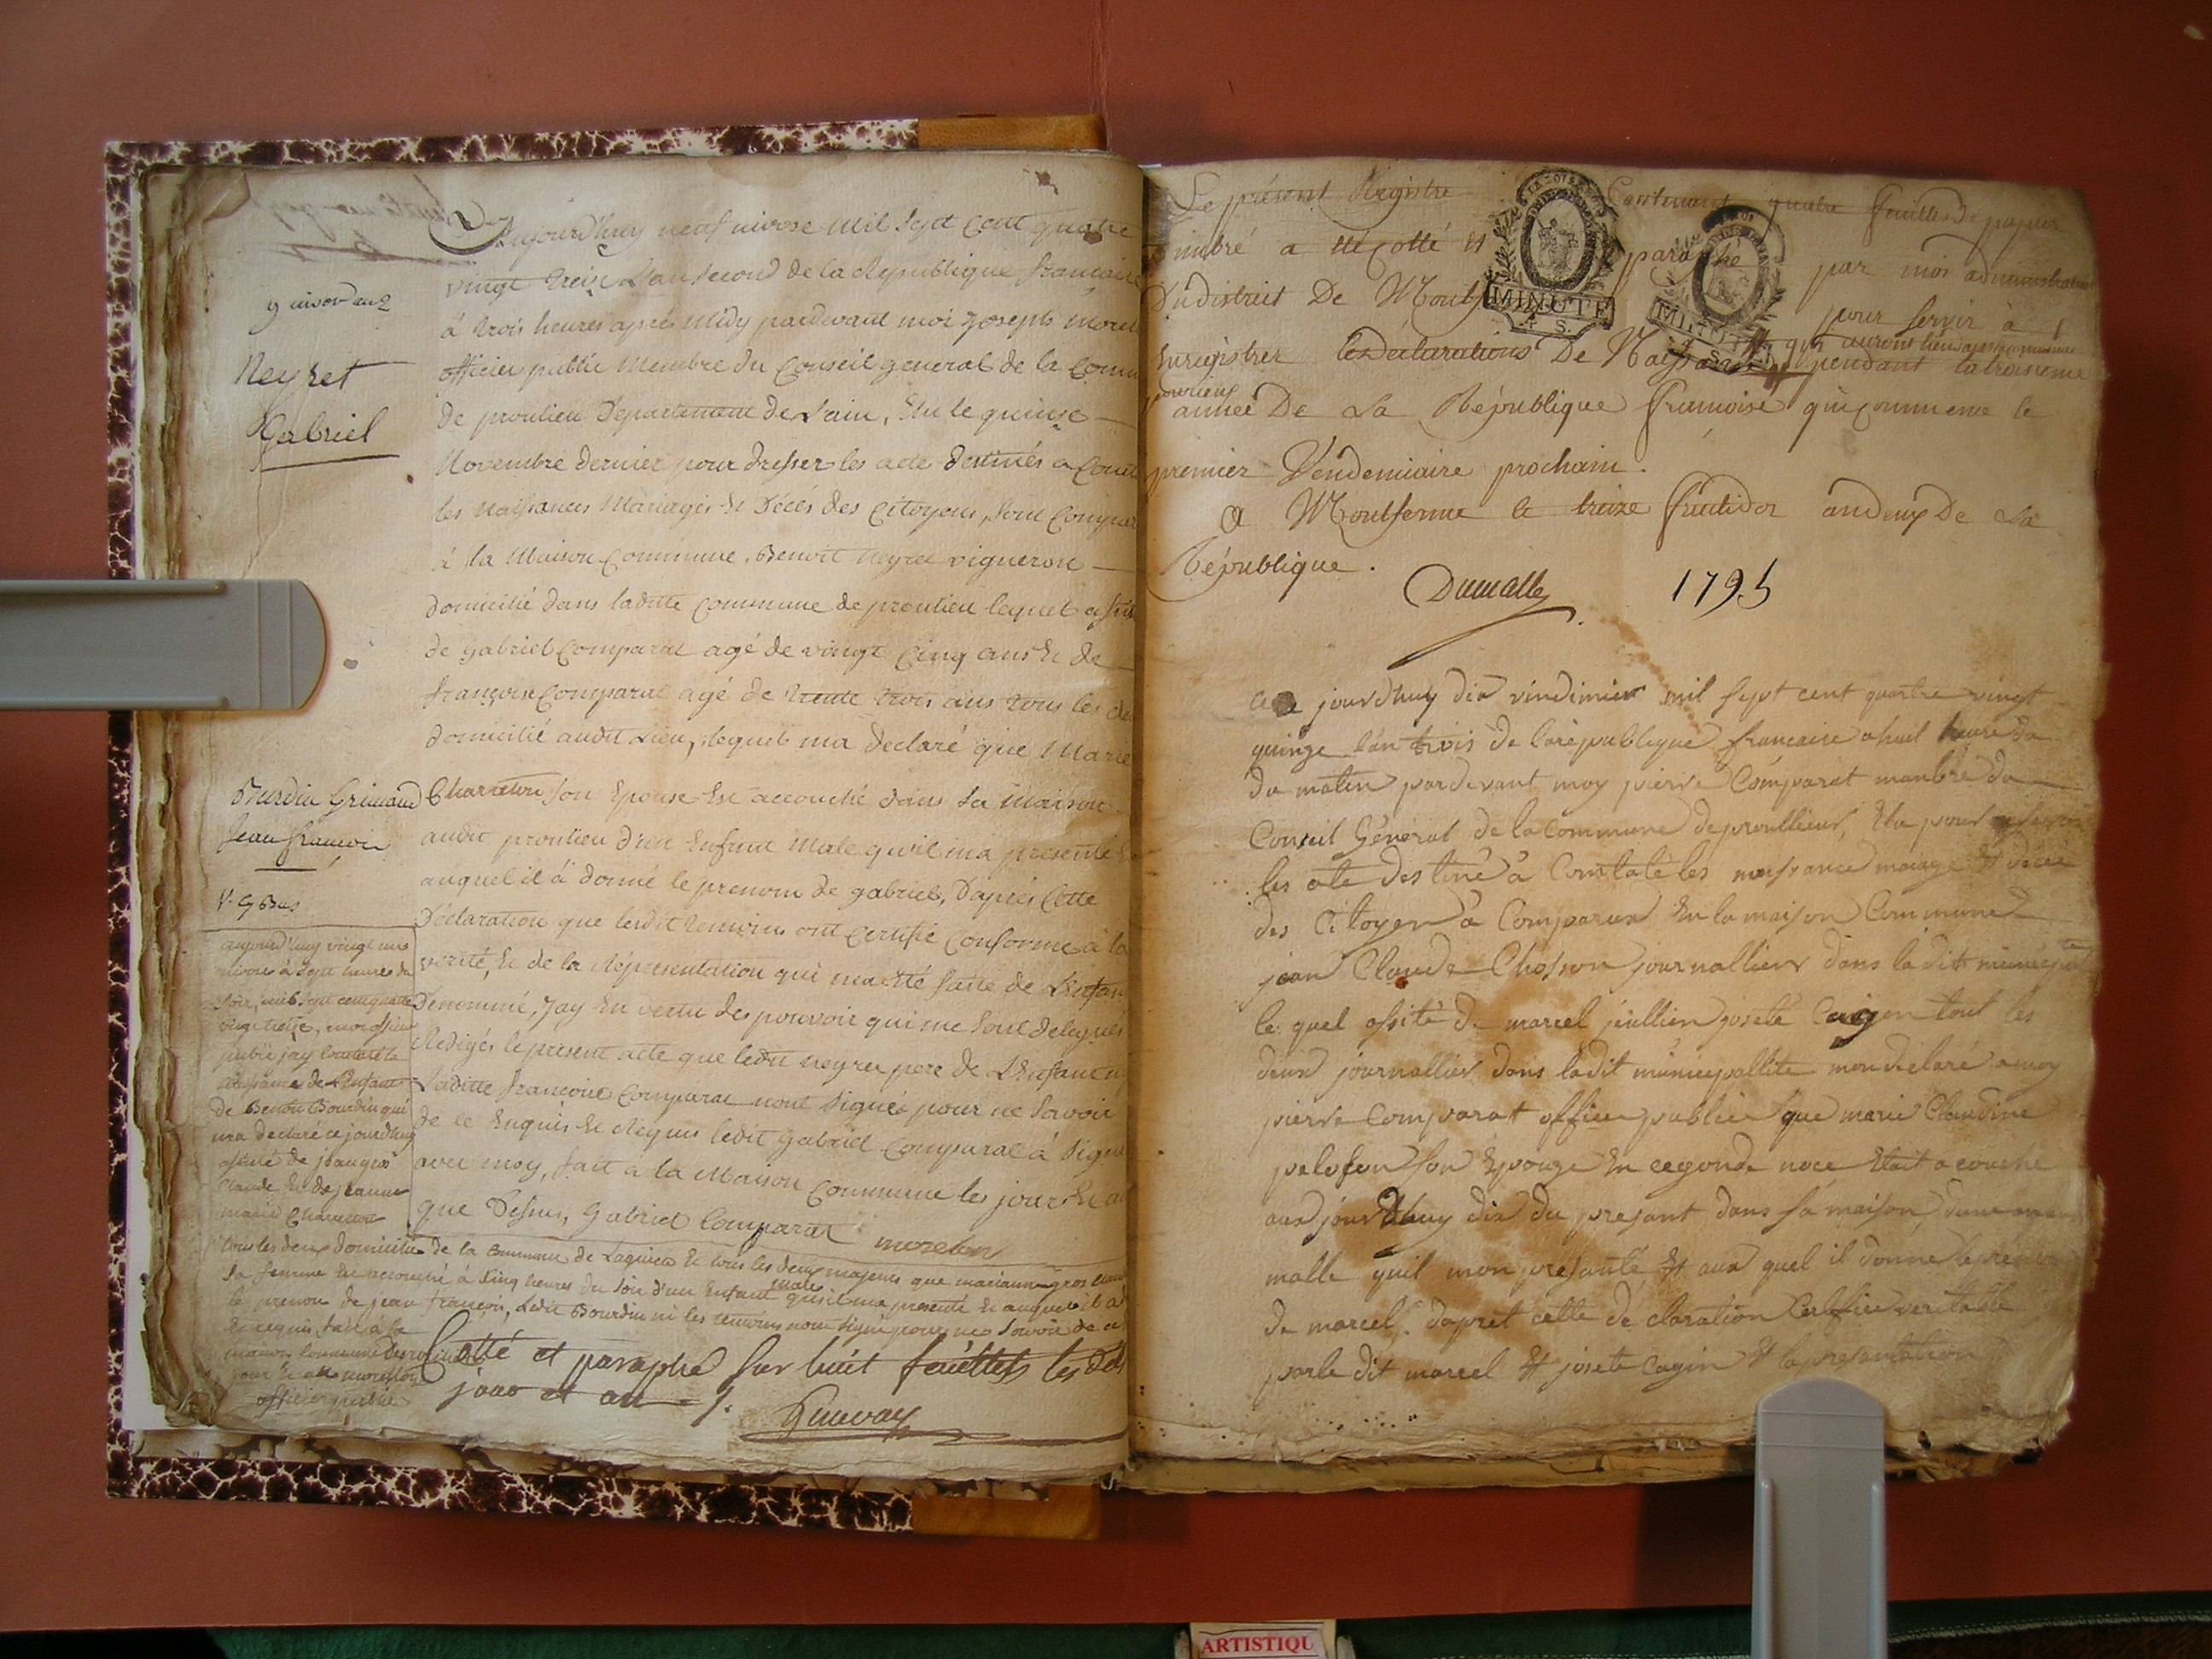 9 nivose an 2
Neyret
Gabriel
Aujourdhuy neuf nivose mil sept cent quatre
vingt treize L'an second de la Republique francaise
à trois heures après Midy pardevant moi Joseph Morel
officier public Membre du Conseil general de la Comm
de proulieu Departement de L'ain, Elu le quinse
Novembre dernier pour dresser les acte destinés a Const
les Naissances Mariages Et Décès des Citoyens, sont Compar
à la Maison Commune, Benoit Neyret vigneron
domicilié dans laditte Commune de proulieu lequel assisté
de Gabriel Comparat agé de vingt Cinq ans Et de
françoise Comparat agé de trente trois ans tous les deu
domicilié audit Lieu, lequel ma declaré que Marie
Charreton son Epouse Est accouché dans sa maison
audit proulieu d'un Enfant Male qu'il ma presenté
auquel il à donné le prenom de gabriel, D'après Cette
Déclaration que lesdit temoins ont Certifié Conforme à la
verité, Et de la Représentation qui ma été faite de L'Enfan
Denommé, Jay En vertu des pouvoir qui me sont delegués
Redigés le present acte que ledit neyret pere de L'Enfant
Laditte francoise Comparat nont signés pour ne savoir
de ce Enquis Et Requis ledit Gabriel Comparat à signé
avec moy, fait à la Maison Commune les jours Et an
que Dessus, Gabriel Comparat morel
Burdin Grimaud
Jean francois
V. G Bus
aujourdhuy vingt une
nivose à sept heures du
soir, mil sept cent quatre
vingt treize, moi officier
public jay constaté la
naissance de L'Enfant
de Benoit Bourdin qui
ma declaré ce jourdhuy
assisté de francois
Claude Et de jeanne
marie Charreton
tous les deux domicilié de la Commune de Lagnieu Et tous les deux majeurs que marianne gros
sa femme Est accouché à Cinq heures du soir d'un Enfant male qu'il ma presenté Et auquel il a
le prenom de jean francois, Ledit Bourdin ni les temoins nont signé pour ne savoir de ce
Et requis fait à la
maison Commune
jour Et an morel
officier public
Cotté et paraphé sur huit feuillets les dits
jour et an
Le présent Registre Contenant quatre feuilles de papier
timbré a été cotté et paraphé par moi administrateur
Du district De Montf pour servir à
Enregistrer les déclarations De Naissance qui auront lieu
pendant la troisieme
année De La République francoise qui commence le
premier Vendemiaire prochain.
A Montferme le treize fructidor an deux De La
République.
Dumalle 1795
ce jourdhuy dix vindimier mil sept cent quatre vingt
quinze l'an trois de la republique francaise a huit heure du
du matin pardevant moy pierre Comparat manbre du
Conseil Général de la Commune de proullieux, Elu pour
les ate destiné à Constaté les naissance mariage Et décé
des Citoyen à Comparux En la maison Commune
jean Claude Chosson journallier dans la dit municipalité
le quel assité de marcel jeullien joseté Cagon tout les
deux journallier dans ladit municipallité mon déclaré a moy
pierre Comparat officie publice que marie Claudine
pelosson son Epouze En cegonde noce Etait acouché
aux jourdhuy dix du presant dans sa maison
malle quil mon présanté Et aux quel il donne le
de marcel. dapret cette déclaration Certifiée veritable
parle dit marcel Et josete Cagin Et la presantation
MINUTE
4 S.
ARTISTIQU